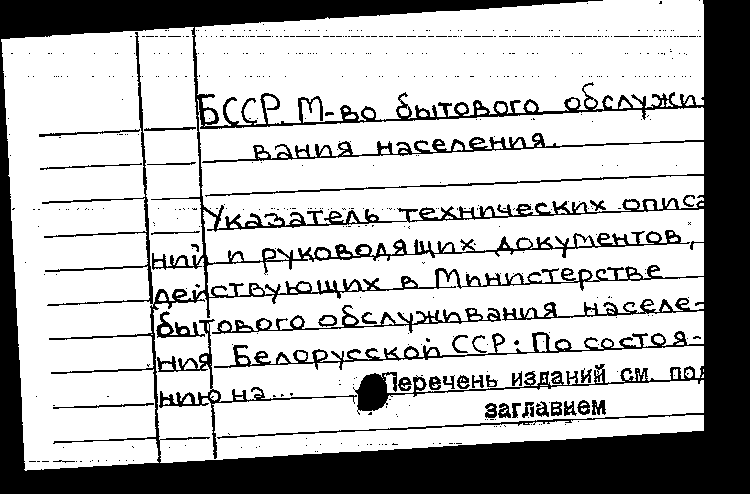 БССР. М-во бытового обслужи-
вания населения.
Указатель технических описа
ний и руководящих документов,
действующих в Министерстве
бытового обслуживания населе-
ния Белорусской ССР: По состоя-
нию на...
Перечень изданий см. под
заглавием